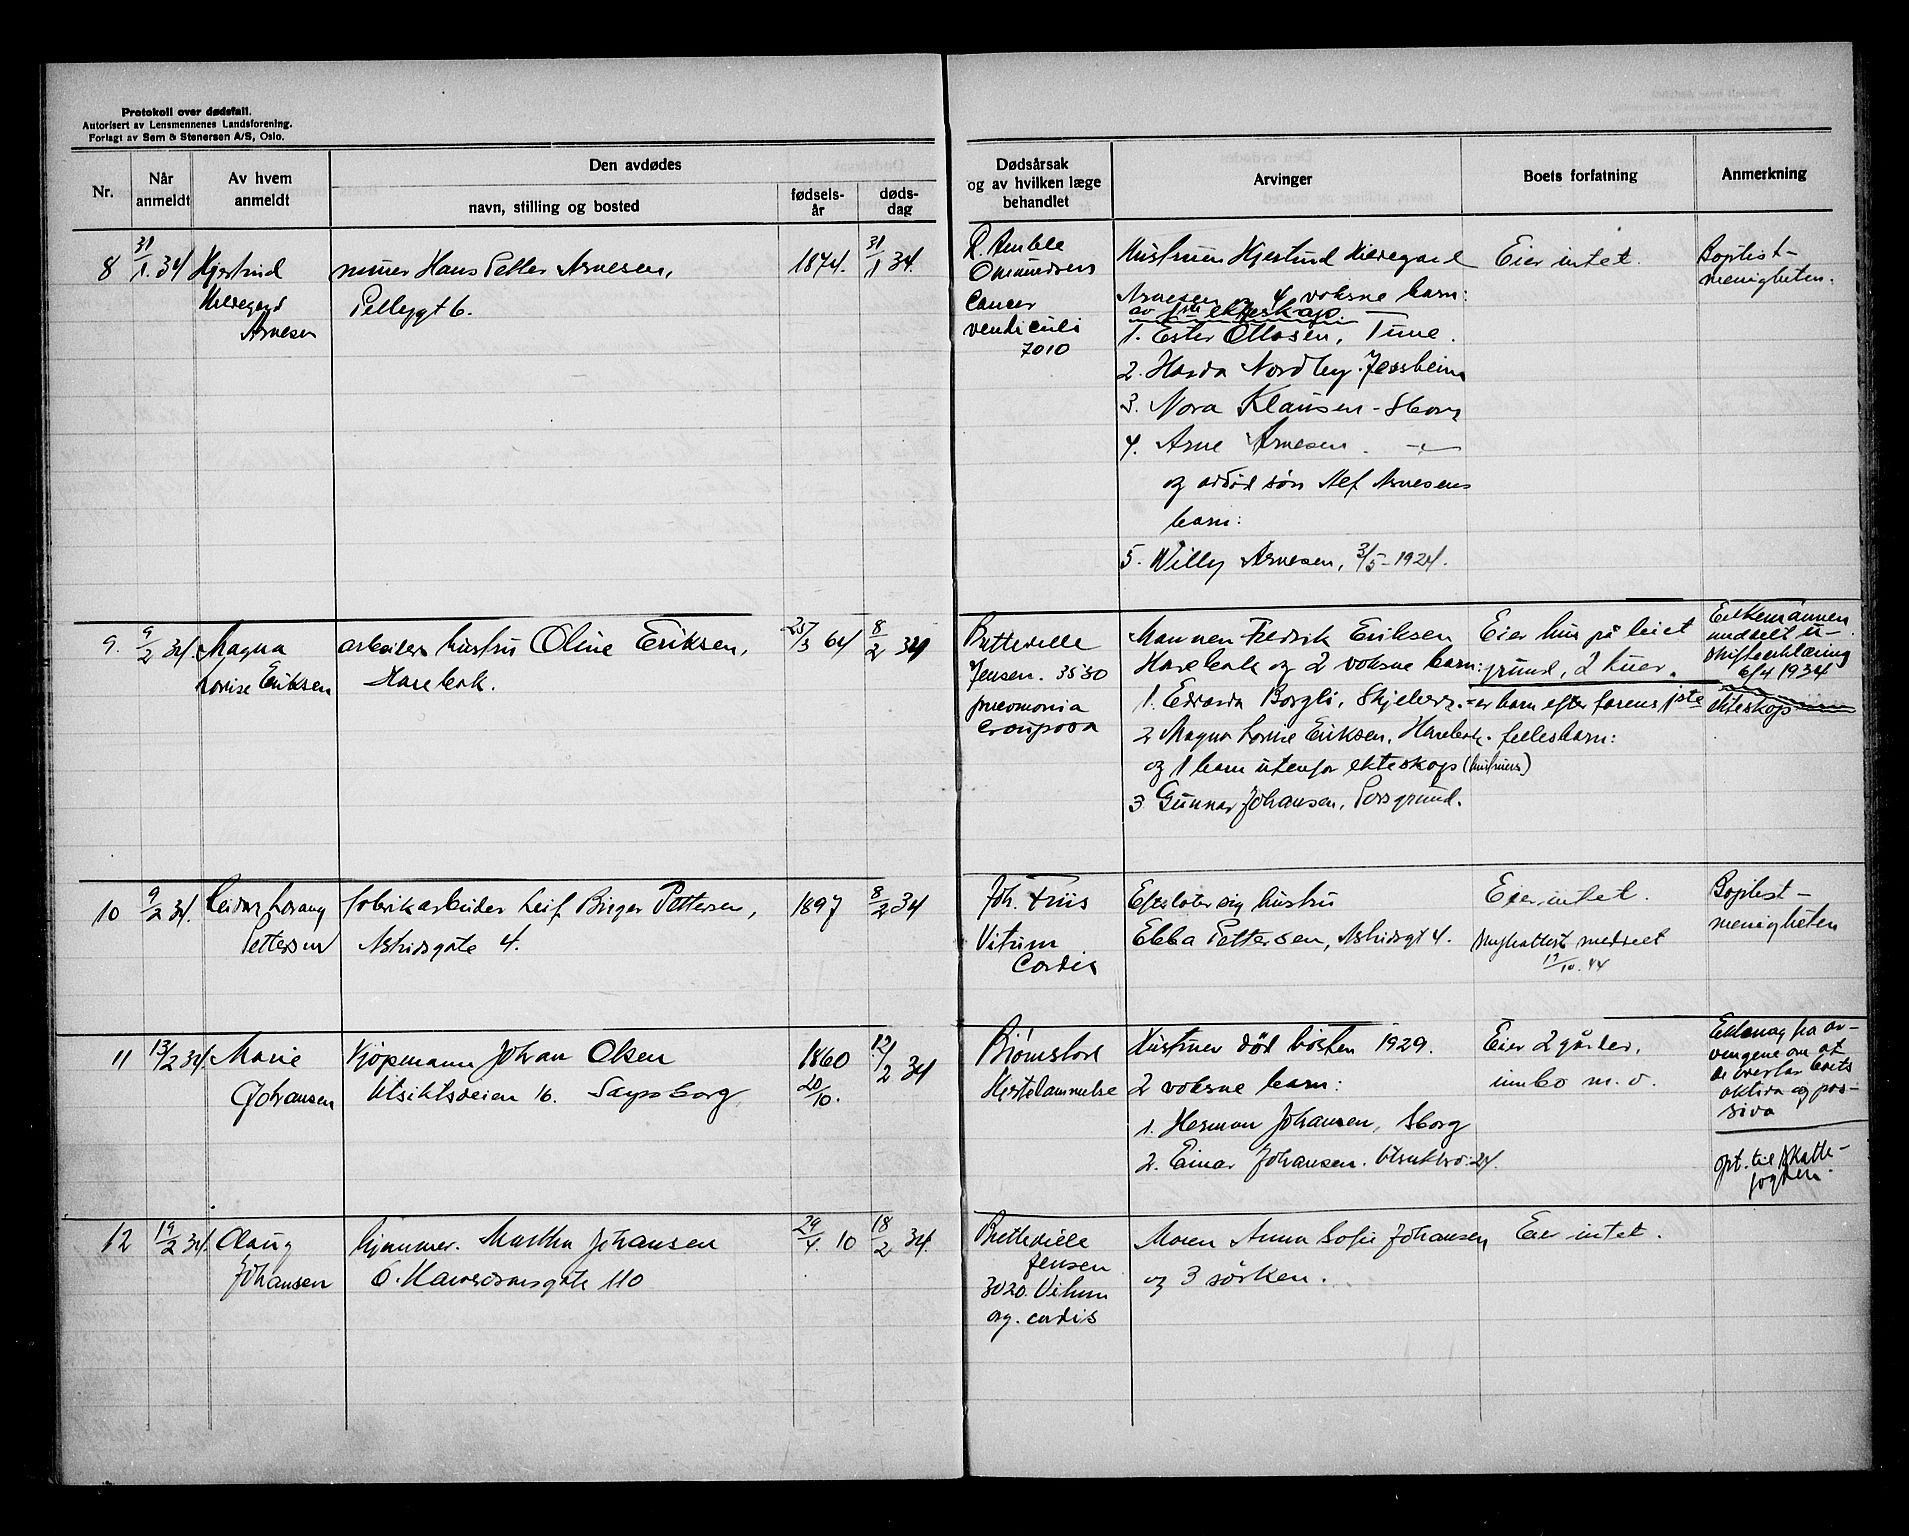 Protokoll over dødsfall.
Autorisert av Lensmennenes Landsforening.
Forlagt av Sem & Stenersen A/S, Oslo.
Nr.
Når anmeldt
Av hvem anmeldt
Den avdødes
navn, stilling og bosted
fødsels-år
døds-dag
Dødsårsak
og av hvilken læge
behandlet
Arvinger
Boets forfatning
Anmerkning
8 31/1. 34 Hjertrud
Arnesen
murer Hans Petter Arnesen,
1874. 31/1 34.
Omundsen
Cancer
vendiculi
7010
Hustruen Hjertrud Hildegard
Arnesen og 4 voksne barn:
av 1ste ekteskap.
1. Ester Ottosen, Tune.
2. Harda Nordby. Jessheim
3. Nora Klausen - Sborg
4. Arne Arnesen.
og avdød søn Alf Arnesens
barn:
5. Willy Arnesen, 3/5-1924.
Eier intet.
Baptist-
menigheten.
9. 9/2 34. Magna
Lovise Eriksen
arbeider hustru Oline Eriksen,
Harebak.
25/3 64 8/2 34
Bretteville
Jensen. 3530
pneomonia
crouposa
Mannen Fredrik Eriksen
Harebak og 2 voksne barn:
1. Edvarda Borgli, Skjeberg. = er barn efter farens 1ste
ekteskap
2 Magna Lovise Eriksen, Harebak. fellesbarn:
og 1 barn utenfor ekteskap (hustruens)
3 Gunnar Johansen, Porsgrund.
Eier hus på leiet
grund, 2 kuer.
Enkemannen
meddelt u-
skifteerklæring
6/4 1934
10 9/2 34. Reidar
Pettersen
fabrikarbeider Leif Birger Pettersen,
Astridsgate 4.
1897 8/2 34
Joh. Friis
Vitium
Cordis
Efterlater sig hustru
Ebba Pettersen, Astridsgt 4.
Eier intet.
meddelt
19/10. 44
Baptist-
menigheten
11 13/2 34. Marie
Johansen
Kjøpmann Johan Olsen
Utsiktsveien 16. Sarpsborg
1860
20/10.
12/2 34
Bjørnstad
Hjertelammelse
Hustruen død høsten 1929.
2 voksne barn:
1. Herman Johansen, Sborg
2. Einar Johansen. 24.
Eier 2 gårder,
innbo m. v.
fra ar-
vingene om at
de overtar boets
aktiva og pas-
siva
opt. til skatte-
fogden.
12 19/2 34. Olaug
Johansen
hjemmev. Martha Johansen
O. Haraldsonsgate 110
29/4. 10 18/2 34.
Bretteville
Jensen
3020. Vitium
org. cordis
Moren Anna Sofie Johansen
og 3 søsken.
Eier intet.